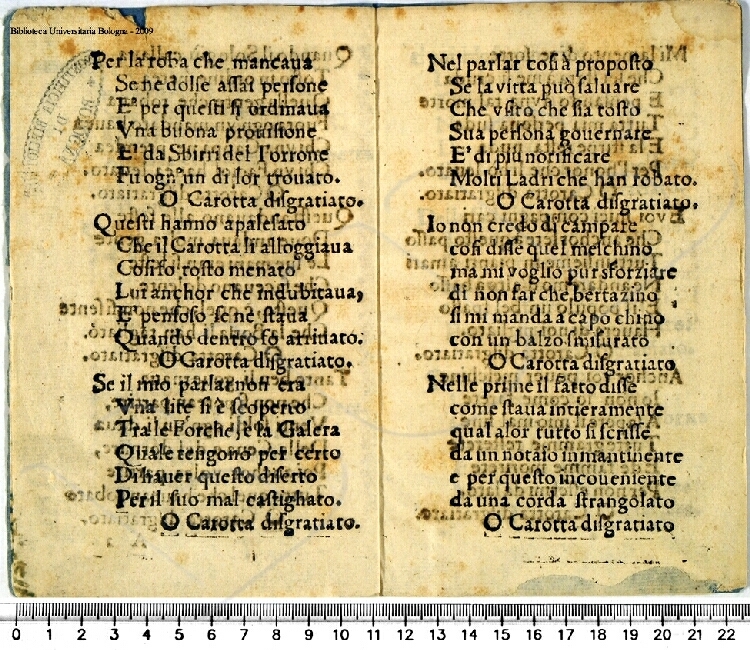 Biblioteca Universitaria Bologna - 2009
Per la roba che mancaua
Se ne dolse assai persone
E' per questi si ordinaua
Vna buona prouisione
E' da Sbirri del Torrone
Fu ogn'un di lor trouato.
O Carotta disgratiato.
Questi hanno apalesato
Che il Carotta li alloggiaua
Così fo tosto menato
Lui anchor che indubitaua,
E' pensoso se ne staua
Quando dentro fo arriuato.
O Carotta disgratiato.
Se il mio parlar non era
Vna lite si è scoperto
Tra le Forche, e la Galera
Quale tengono per certo
Di hauer questo diserto
Per il suo mal castighato.
O Carotta disgratiato.
Nel parlar così à proposto
Se la vitta può saluare
Che visto che sia tosto
Sua persona gouernare
E' di più notificare
Molti Ladri che han robato.
O Carotta disgratiato.
Io non credo di campare
così disse quel meschino
ma mi voglio pur sforziare
di non far che bertazino
si mi manda a capo chino
con un balzo smisurato
O Carotta disgratiato
Nelle prime il fatto disse
come staua intieramente
qual alor tutto si scrisse
da un notaio inmantinente
e per questo incoueniente
da una corda strangolato
O Carotta disgratiato
0 1 2 3 4 5 6 7 8 9 10 11 12 13 14 15 16 17 18 19 20 21 22